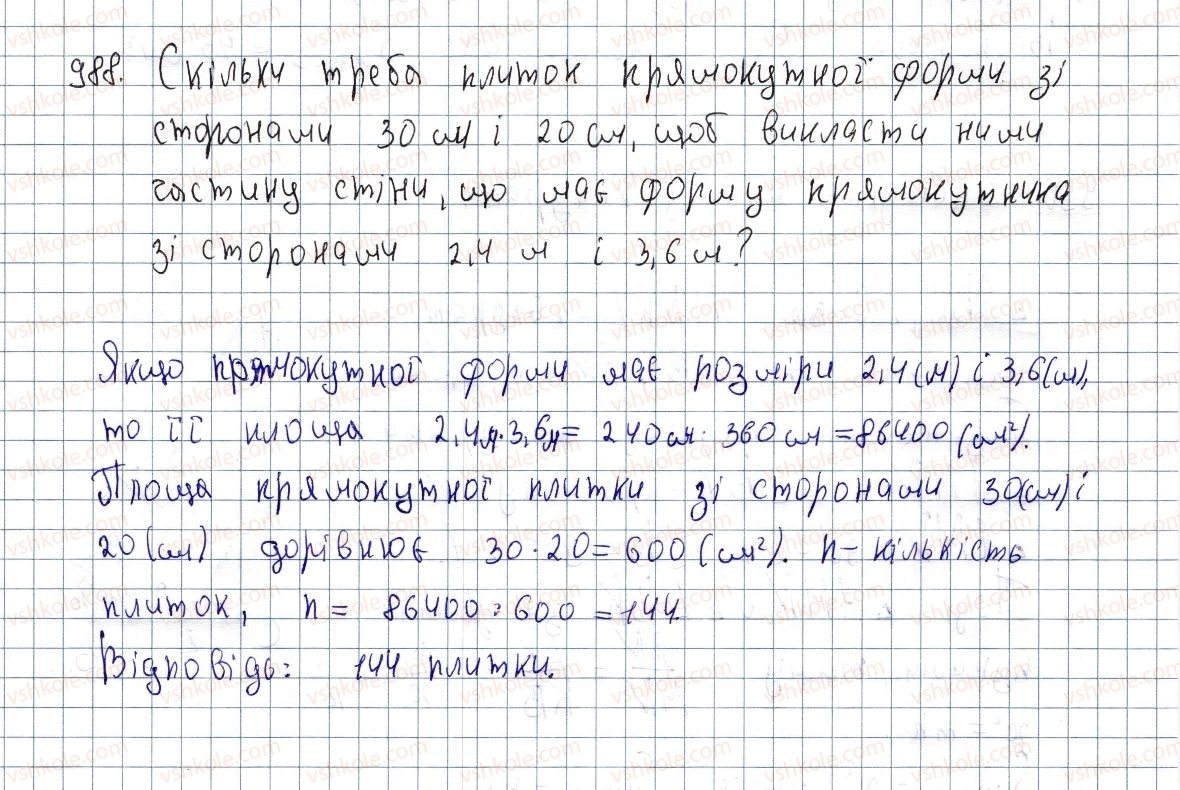 988. Скільки треба плиток прямокутної форми зі
сторонами 30 см і 20 см, щоб викласти ними
частину стіни, що має форму прямокутника
зі сторонами 2,4 м і 3,6 м?
Якщо прямокутної форми має розміри 2,4 (м) і 3,6 (м),
то її площа 2,4м·3,6м= 240 см · 360 см =86400 (см²).
Площа прямокутної плитки зі сторонами 30(см) і
20 (см) дорівнює 30·20=600 (см²). n – кількість
плиток, n = 86400:600 =144.
Відповідь: 144 плитки.